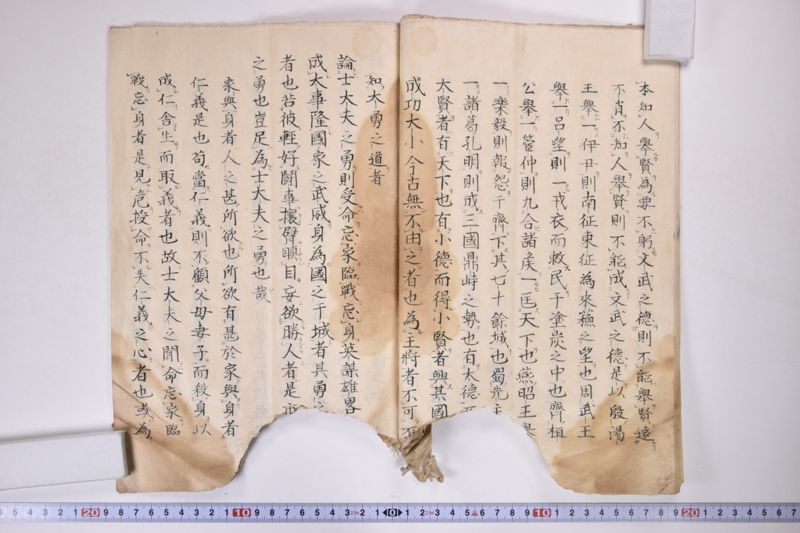 本知人舉賢為要不躬文武之德則不能舉賢遠
不肖不知人舉賢則不能成文武之德是以殷湯
王舉一伊尹則南征東征為來蘓之望也周武王
舉一呂望則一戎衣而救民于塗炭之中也齊桓
公舉一管仲則九合諸矦一匡天下也燕昭王舉
一樂毅則報怨于齊下其七十餘城也蜀先主
一諸葛孔明則成三國鼎峙之勢也有大德
大賢者有天下也有小德而得小賢者興其國
成功大小今古無不由之者也為王將者不可不
知大勇之道者
論士大夫之勇則受命忘家臨戰忘身英謀雄畧
成大事隆國家之武威身為國之干城者具勇之
者也若彼輕好鬪事攘臂瞋目妄欲勝人者是
之勇也豈足為士大夫之勇也哉
家與身者人之甚所欲也所欲有甚於家與身者
仁義是也苟當仁義則不顧父母妻子而殺身以
成仁舍生而取義者也故士大夫之聞命忘家臨
戰忘身者是見危授命不失仁義之心者也或為